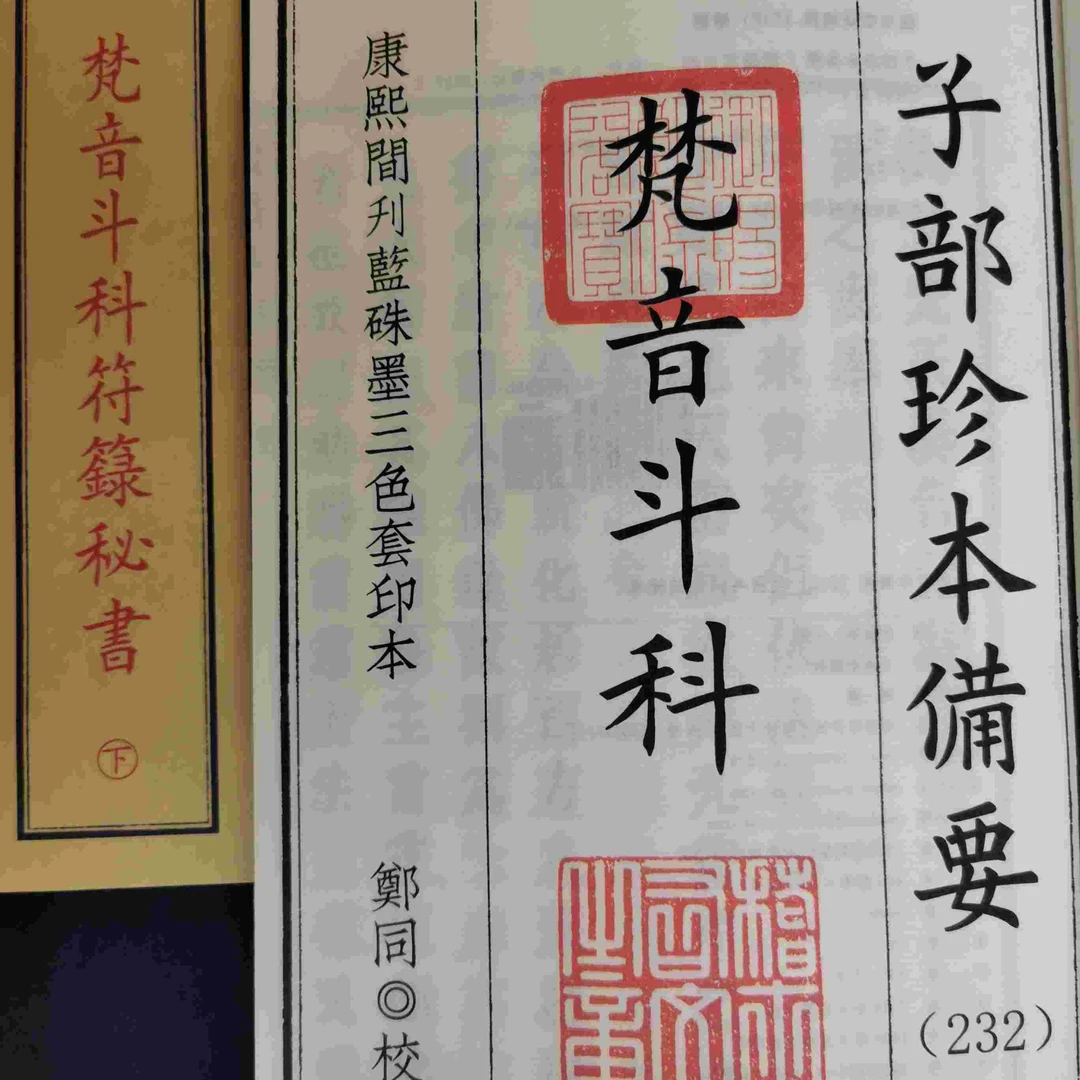 子部珍本備要
(232)
梵音斗科
康熙間刋藍硃墨三色套印本
鄭同◎校
梵音斗科符籙秘書
下